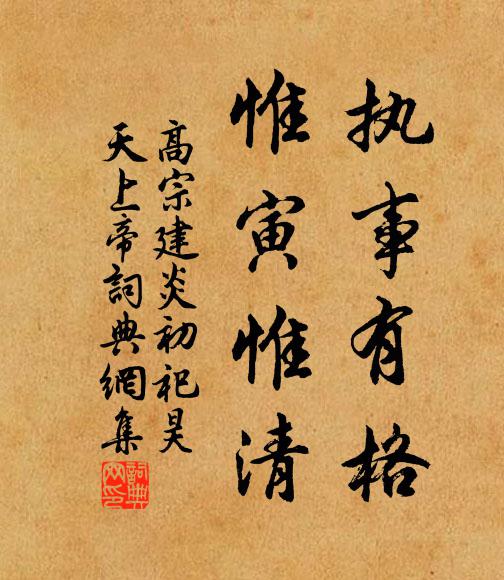 执事有格
惟寅惟清
高宗建炎初祀昊
天上帝詞典網集
詞典
网印